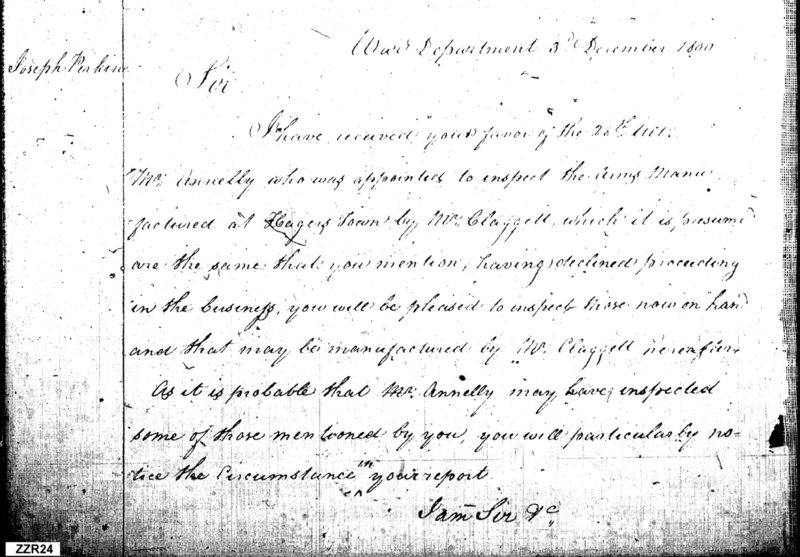 War Department 3d December 1800
Joseph Perkin
Sir
I have received your favor of the 28th Ult:
Mr. Annelly who was appointed to inspect the Arms Manu
factured at Hagers Town by Mr. Claggett, which it is presum
are the same that you mention, having declined proceeding
in the business, you will be pleased to inspect those now on hand
and that may be manufactured by Mr. Claggett hereafter.
As it is probable that Mr. Annelly may have inspected
some of those mentioned by you, you will particularly no-
tice the Circumstance in your report
I am Sir &c
ZZR24